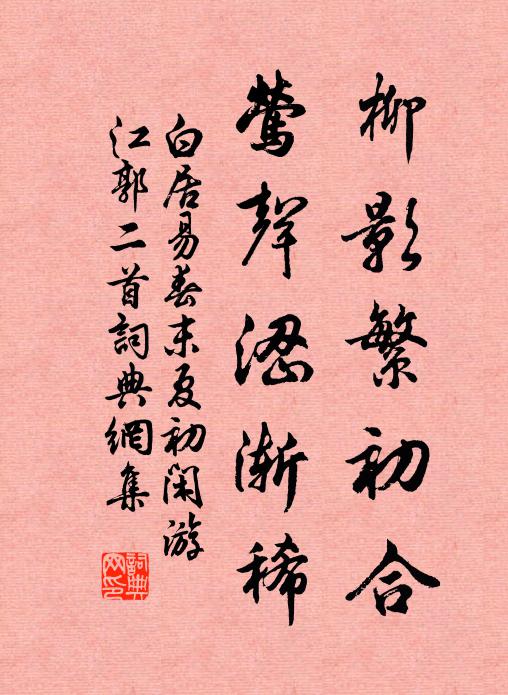 柳影繁初合
鶯聲澀漸稀
白居易春末夏初闲游
江郭二首詞典網集
詞典网印